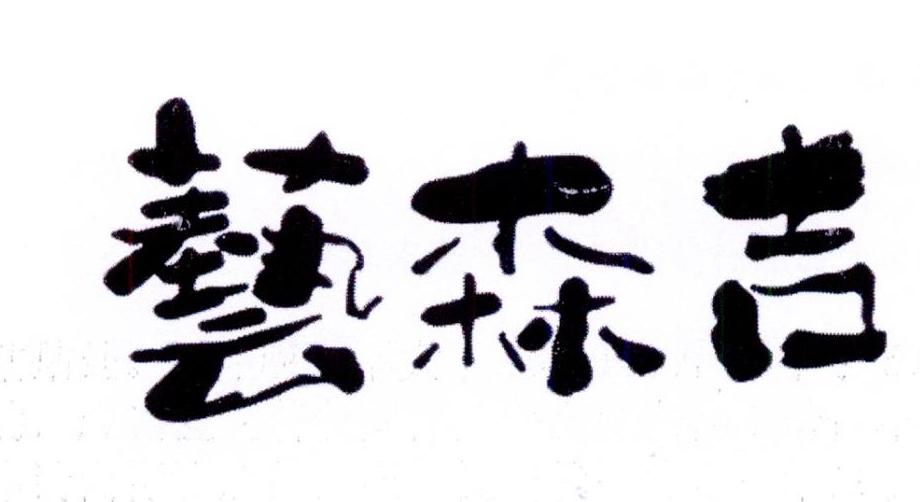 吉森藝